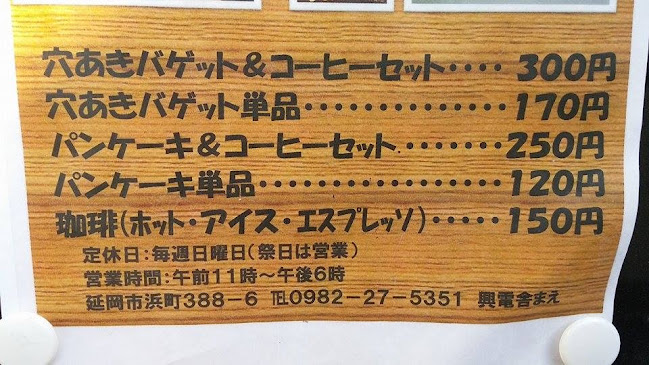 穴あきバゲット&コーヒーセット････300円
穴あきバゲット単品･･････････････170円
パンケーキ&コーヒーセット････････250円
パンケーキ単品･･････････････････120円
珈琲(ホット・アイス・エスプレッソ)･････150円
定休日:毎週日曜日(祭日は営業)
営業時間:午前11時～午後6時
延岡市浜町388-6 ℡0982-27-5351 興電舎まえ